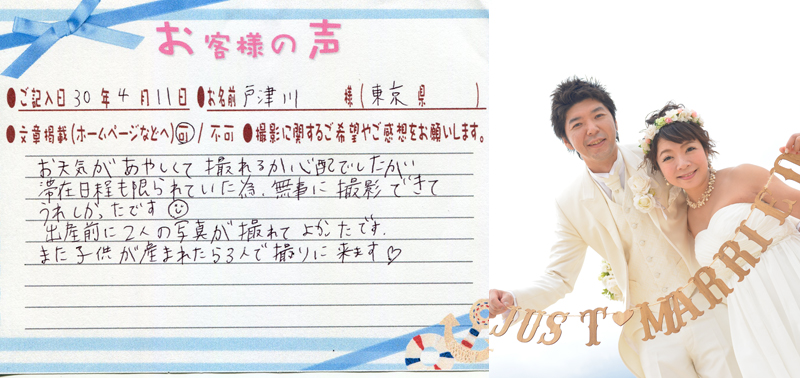 お客様の声
●ご記入日 30年 4月 11日 ●お名前 戸津川 様(東京 県 )
●文章掲載(ホームページなどへ) 可 / 不可 ●撮影に関するご希望やご感想をお願いします。
お天気があやしくて撮れるか心配でしたが
滞在日程も限られていた為、無事に撮影できて
うれしかったです
出産前に2人の写真が撮れてよかたです.
また子供が産まれたら3人で撮りに来ます♡
JUST♥MARRIED